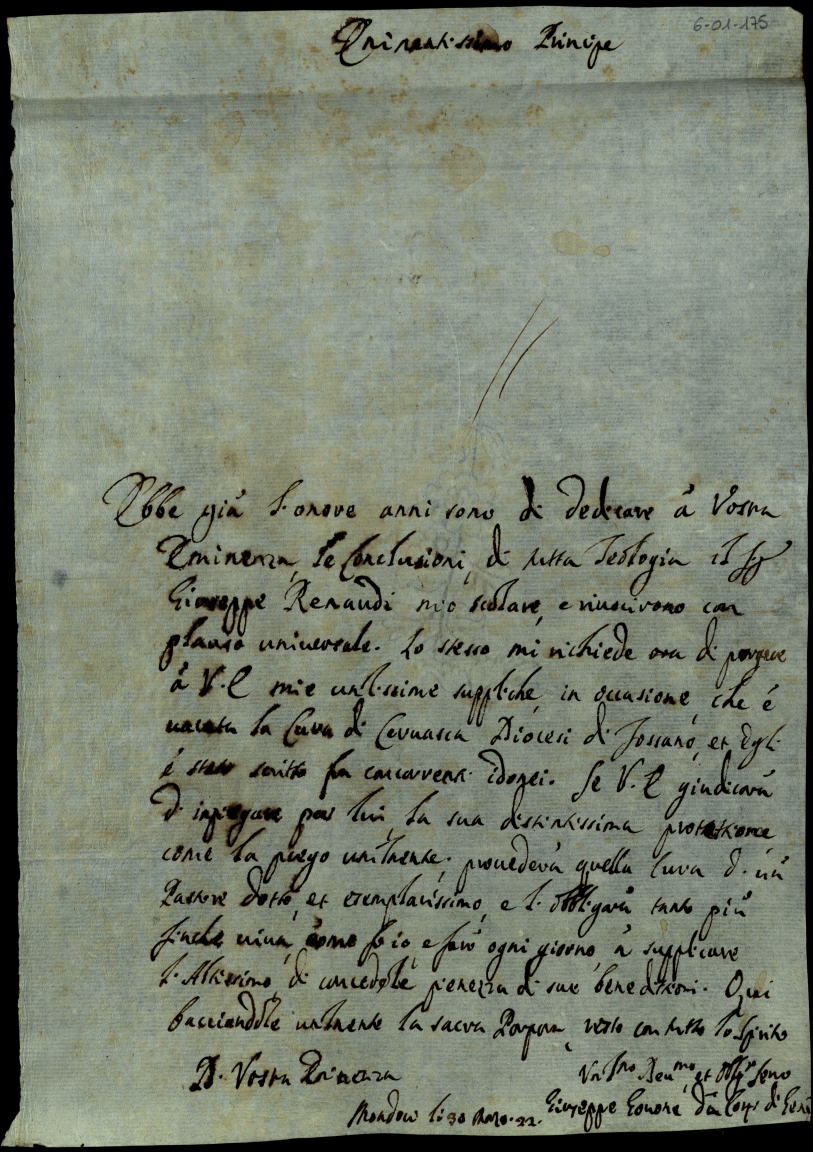 6-01-175
Eminentissimo Principe
Ebbe già l'onore anni sono di dedicare à Vostra
Eminenza le Conclusioni di tutta Teologia il Sig.
Giuseppe Renaudi mio scolare, e riuscirono con
plauso universale. Lo stesso mi richiede ora di porgere
à V. E. mie umilissime suppliche, in occasione, che é
vacata la Cura di Cervasca Diocesi di Fossano, et Egli
é stato scritto fra concorrenti idonei. Se V. E. giudicarà
d'impiegare per lui la sua distintissima protettione
come la prego umilmente, provederà quella Cura d'un
Pastore dotto, et esemplarissimo, e l'obbligarà tanto più
finche viva, come fò io, e farò ogni giorno, a supplicare
l'Altissimo, di concederle pienezza di sue benedizioni. Qui
bacciandole umilmente la sacra Porpora, resto con tutto lo Spirito
D. Vostra Eminenza
Um.mo Deu.mo, et Obbl.mo Servo
Mondovi li 30 22. Giuseppe